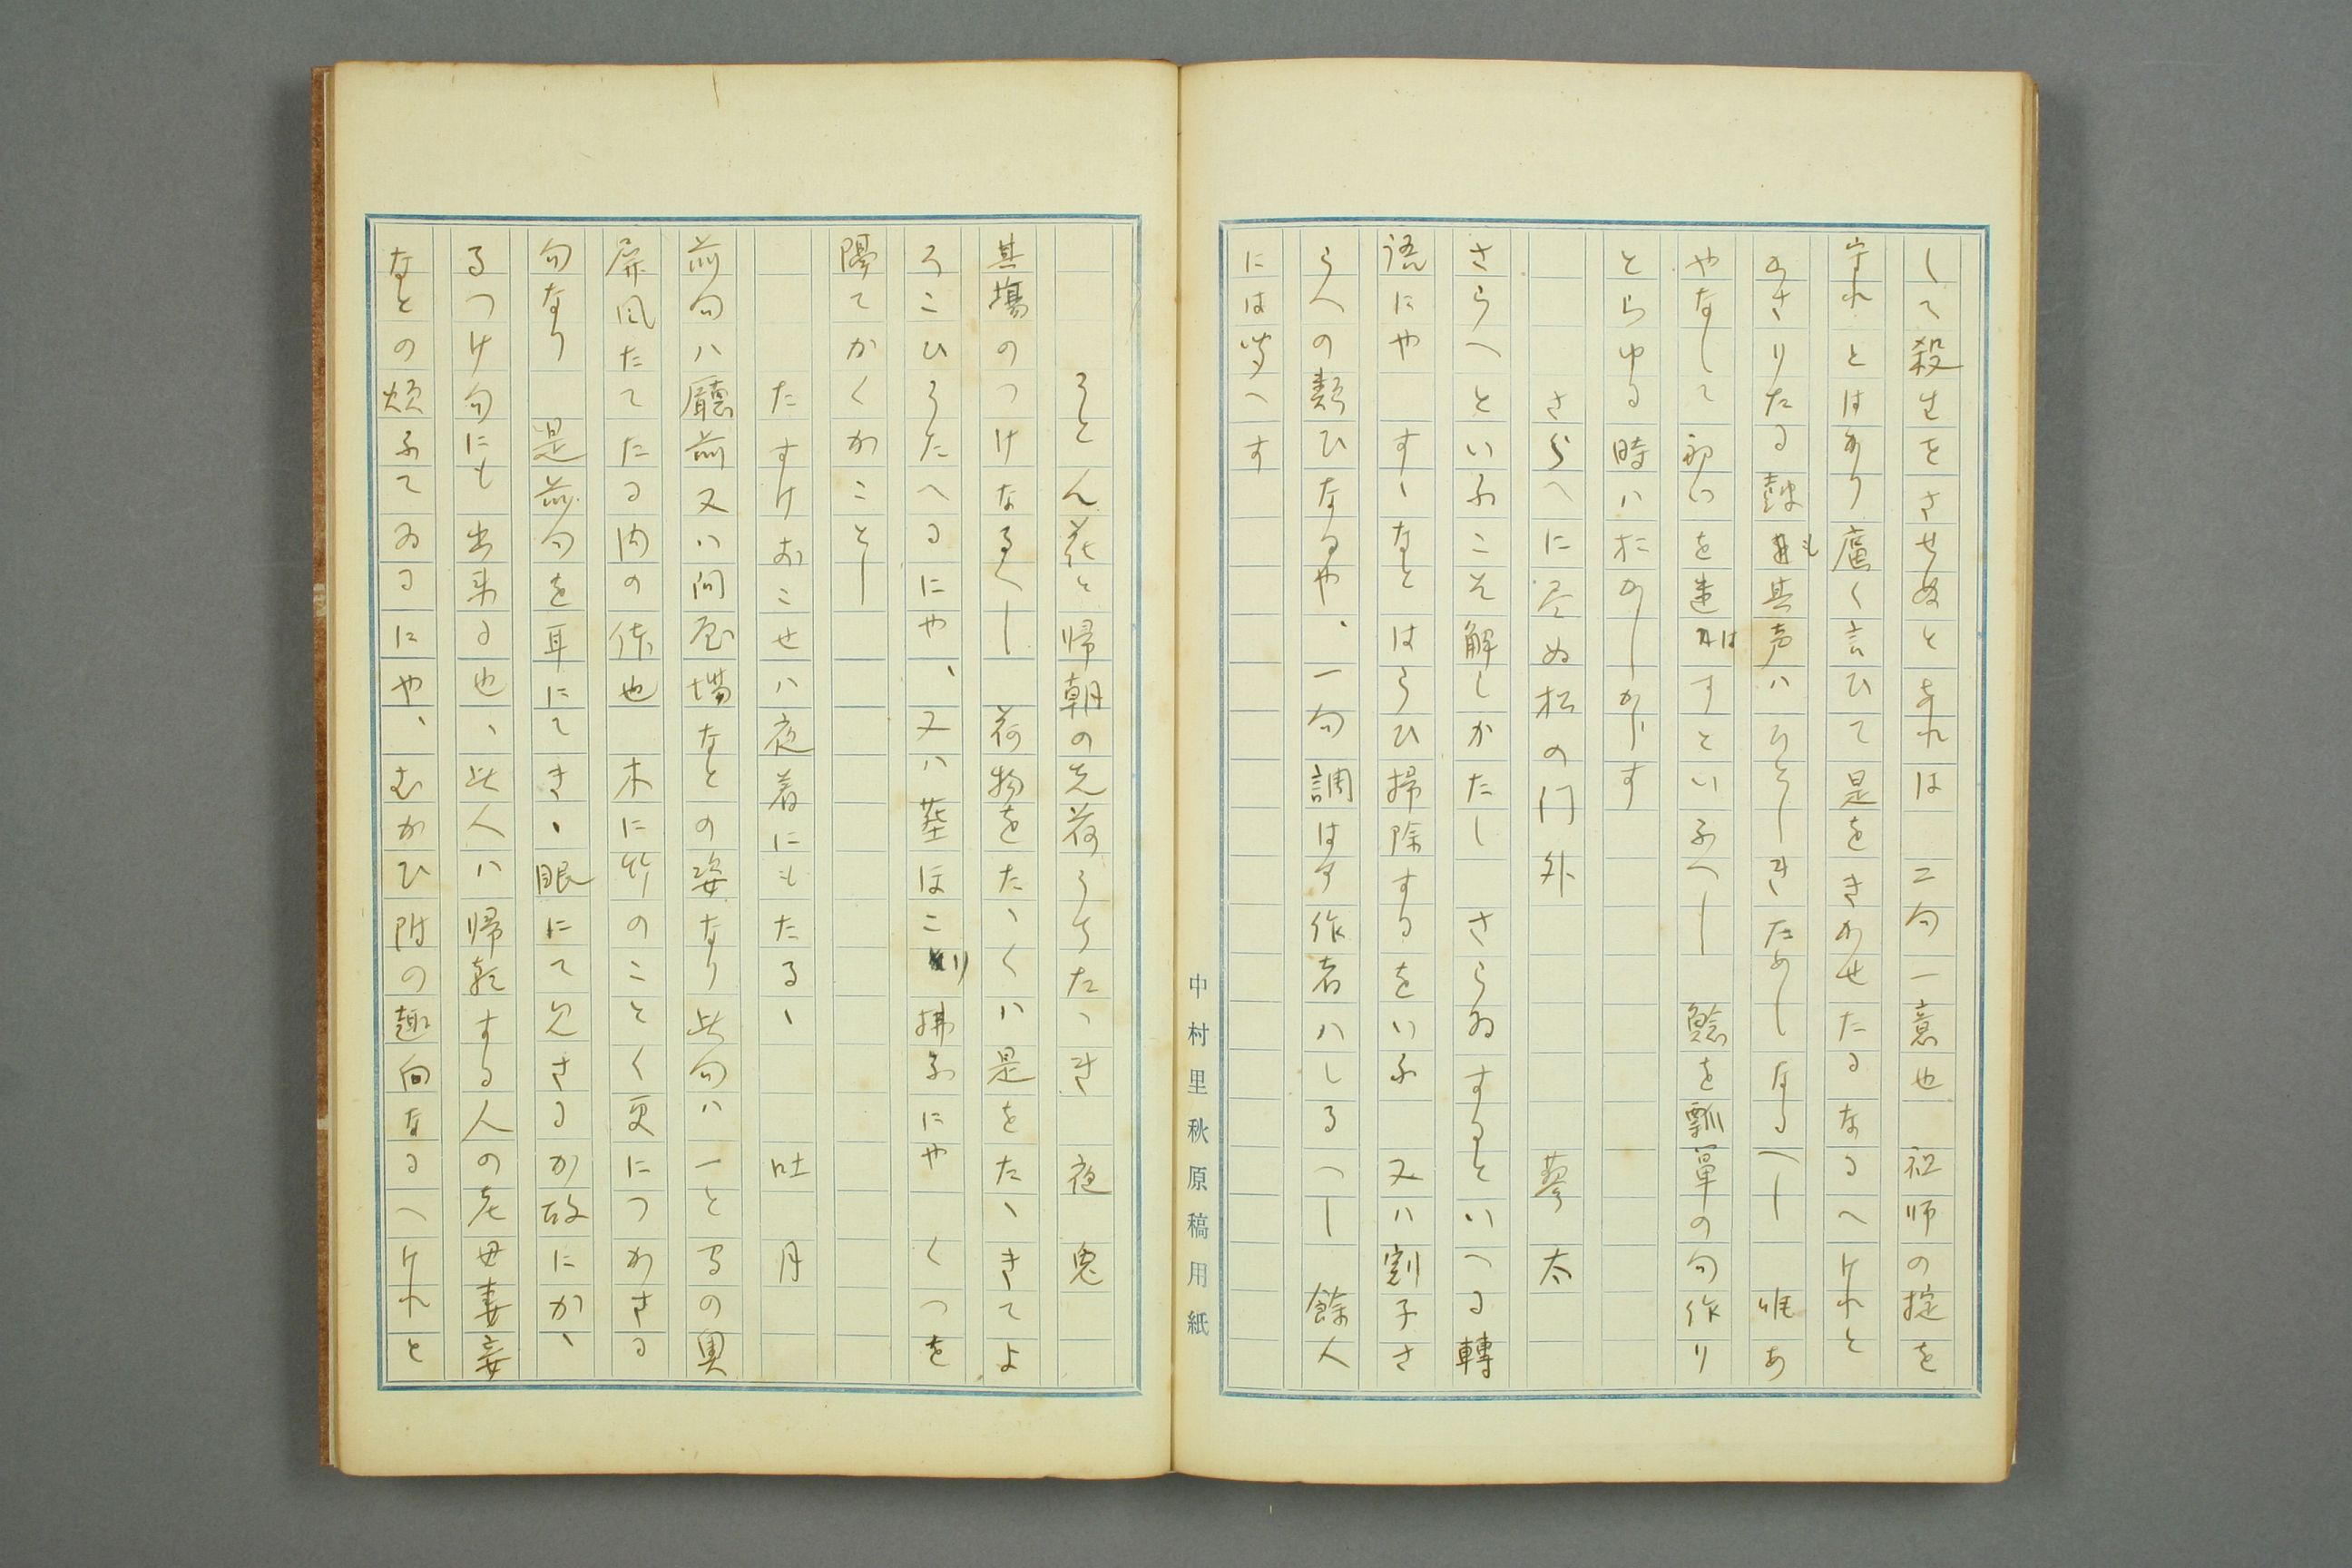 して殺生をさせぬとあれは 二句一意也 祖師の掟を
守れとはかり広く言ひて是をきかせたるなるへけれと
のさりたる 其声ハ
やなして を造はすといふへし 鯰を瓢箪の句作り
とらゆる時ハおかしからす
さらへに尽ぬ松の門外 蓼太
さらへといふこそ解しかたし さらゐするといへる轉
語にや すゝなとはらひ掃除するをいふ 又ハ割子さ
らへの類ひなるや、一句調はす作者ハしるへし 餘人
には
中村里秋原稿用紙
うとん花と帰朝の先荷うちたゝき 夜兎
其場のつけなるへし 荷物をたゝくハ是をたゝきてよ
ろこひうたへるにや、又ハ塵ほこり拂ふにや くつを
隔てかくかことし
たすけおこせハ夜着にもたるゝ 吐月
前句ハ廳前又ハ問屋場なとの姿なり此句ハ一とるの奥
屏風たてたる内の体也 木に竹のことく更につかさる
句なり 是前句を耳にてきゝ眼にて見さるか故にかゝ
るつけ句にも出来る也、此人ハ帰乾する人の老母妻妾
なとの煩ふてゐるにや、むかひ附の趣向なるへけれと